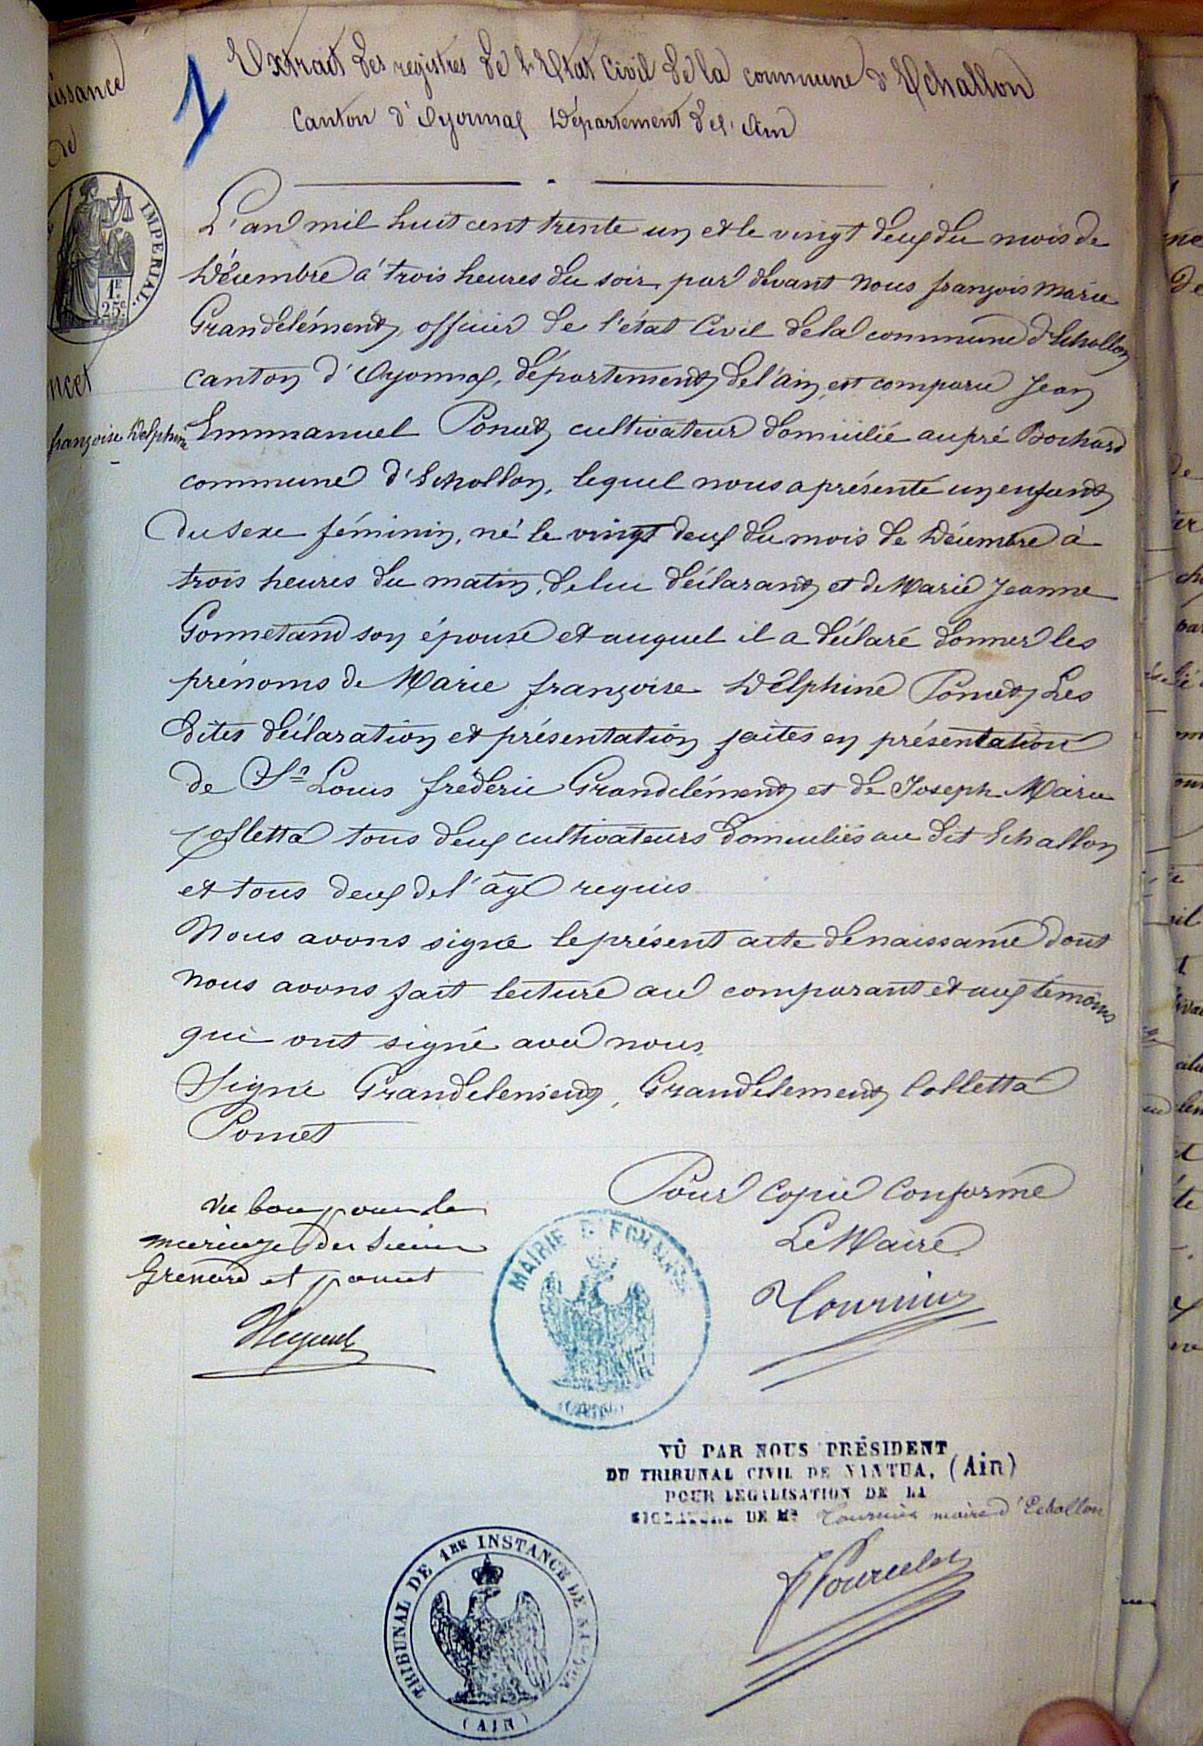 Extrait des registres de l'Etat Civil de la commune d'Echallon
Canton d'Oyonnax Département de l'Ain
1
issance
de
IMPERIAL.
1F.
25c
ncet
françoise Delphine
L'an mil huit cent trente un et le vingt deux du mois de
Décembre à trois heures du soir par devant nous françois Marie
Grandclément, officier de l'état Civil de la commune d'Echallon
canton d'Oyonnax, département de l'Ain, est comparu Jean
Emmanuel Poncet cultivateur domicilié au pré Bochard
commune d'Echallon, lequel nous a présenté un enfant
du sexe féminin, né le vingt deux du mois de Décembre à
trois heures du matin, de lui déclarant et de Marie Jeanne
Gonnetand son épouse et auquel il a déclaré donner les
prénoms de Marie françoise Delphine Poncet, Les
dites déclaration et présentation faites en présentation
de Sr Louis fréderic Grandclément et de Joseph Marie
Colletta tous deux cultivateurs domiciliés au dit Echallon
et tous deux de l'âge requis
Nous avons signé le présent acte de naissance dont
nous avons fait lecture au comparant et aux témoins
qui ont signé avec nous.
Signé Grandclement, Grandclement Colletta
Poncet
Pour copie conforme
Le Maire
Tournier
Vu bon pour le
mariage des sieur
Grenard et poncet
MAIRIE D'ECHALLON
(AIN)
VÛ PAR NOUS PRÉSIDENT
DU TRIBUNAL CIVIL DE NANTUA, (Ain)
POUR LÉGALISATION DE LA
SIGNATURE DE Mr Tournier maire d'Echallon
TRIBUNAL DE 1RE INSTANCE DE NANTUA
(AIN)